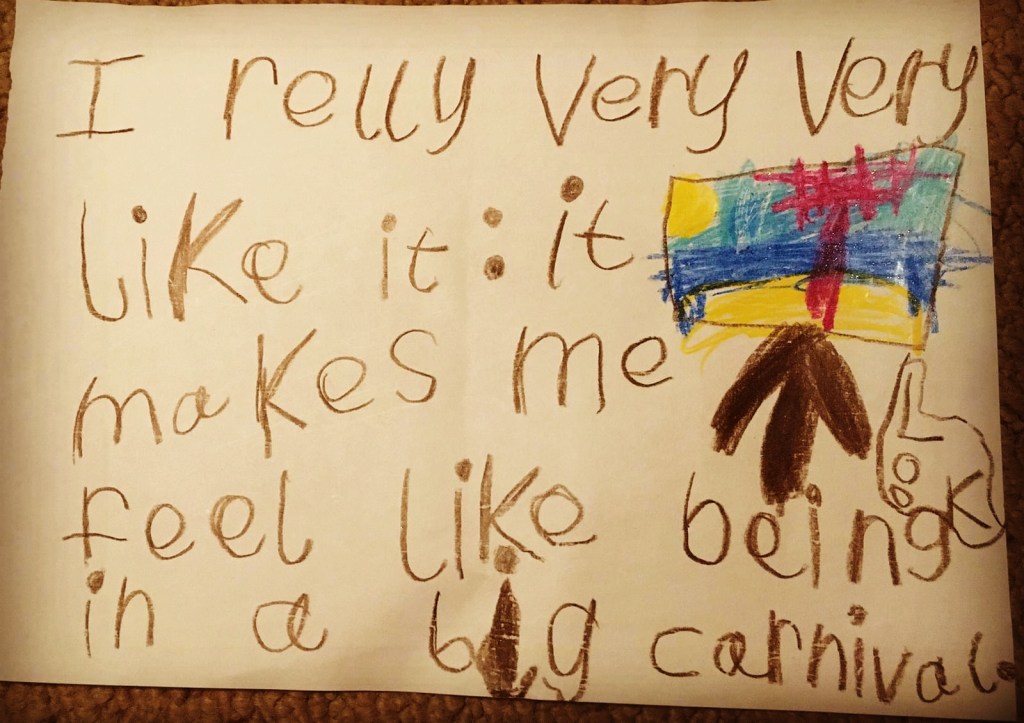 I relly very very
like it: it
makes me
Look
feel like being
in a big carnival.